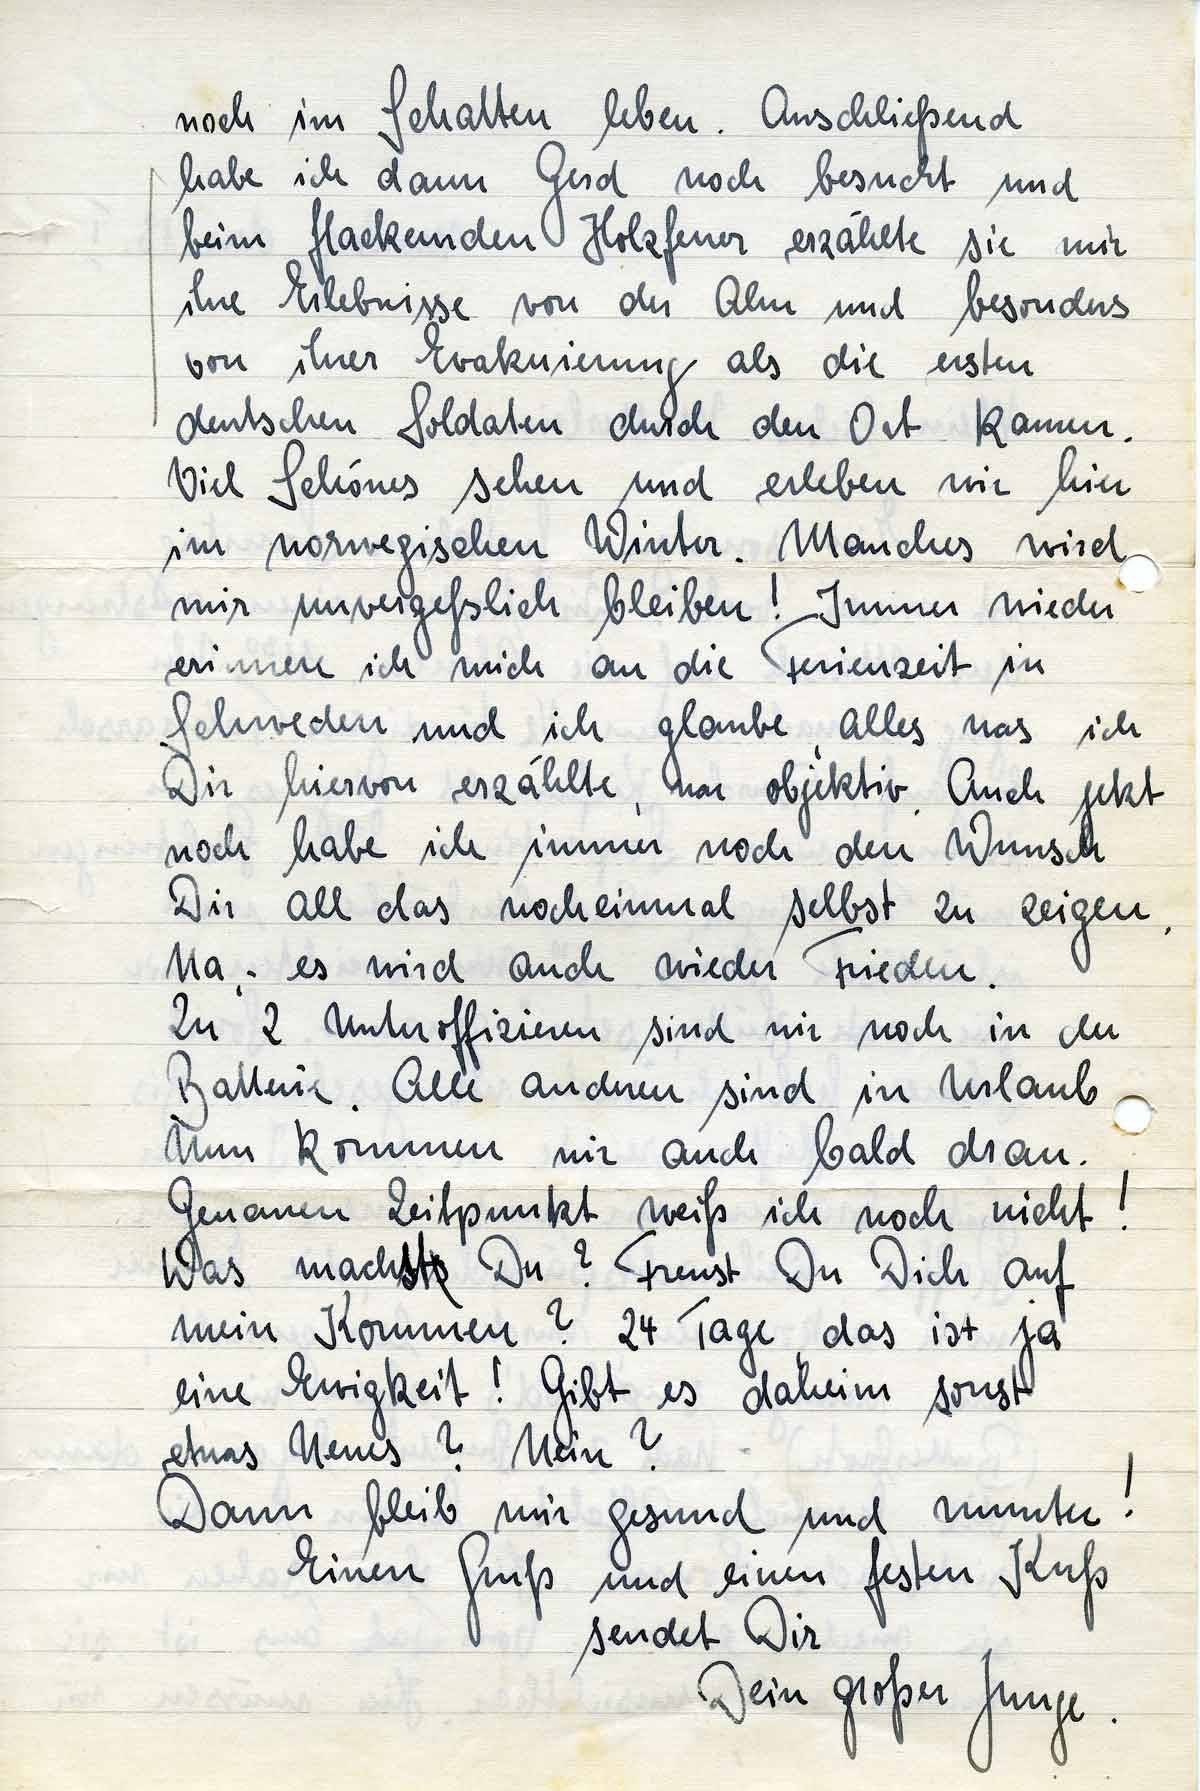 noch im Schatten leben. Anschließend
habe ich dann Gerd noch besucht und
beim flackernden Holzfeuer erzählte sie mir
ihre Erlebnisse von der Alm und besonders
von ihrer Evakuierung als die ersten
deutschen Soldaten durch den Ort kamen.
Viel Schönes sehen und erleben wir hier
im norwegischen Winter. Manches wird
mir unvergeßlich bleiben! Immer wieder
erinnere ich mich an die Ferienzeit in
Schweden und ich glaube, alles was ich
Dir hiervon erzählte, war objektiv. Auch jetzt
noch habe ich immer noch den Wunsch
Dir all das nocheinmal selbst zu zeigen.
Na, es wird auch wieder Frieden.
Zu 2 Unteroffizieren sind wir noch in der
Batterie. Alle anderen sind in Urlaub
Nun kommen wir auch bald dran.
Genauen Zeitpunkt weiß ich noch nicht!
Was machst Du? Freust Du Dich auf
mein Kommen? 24 Tage, das ist ja
eine Ewigkeit! Gibt es daheim sonst
etwas Neues? Nein?
Dann bleib mir gesund und munter!
Einen Gruß und einen festen Kuß
sendet Dir
Dein großer Junge.